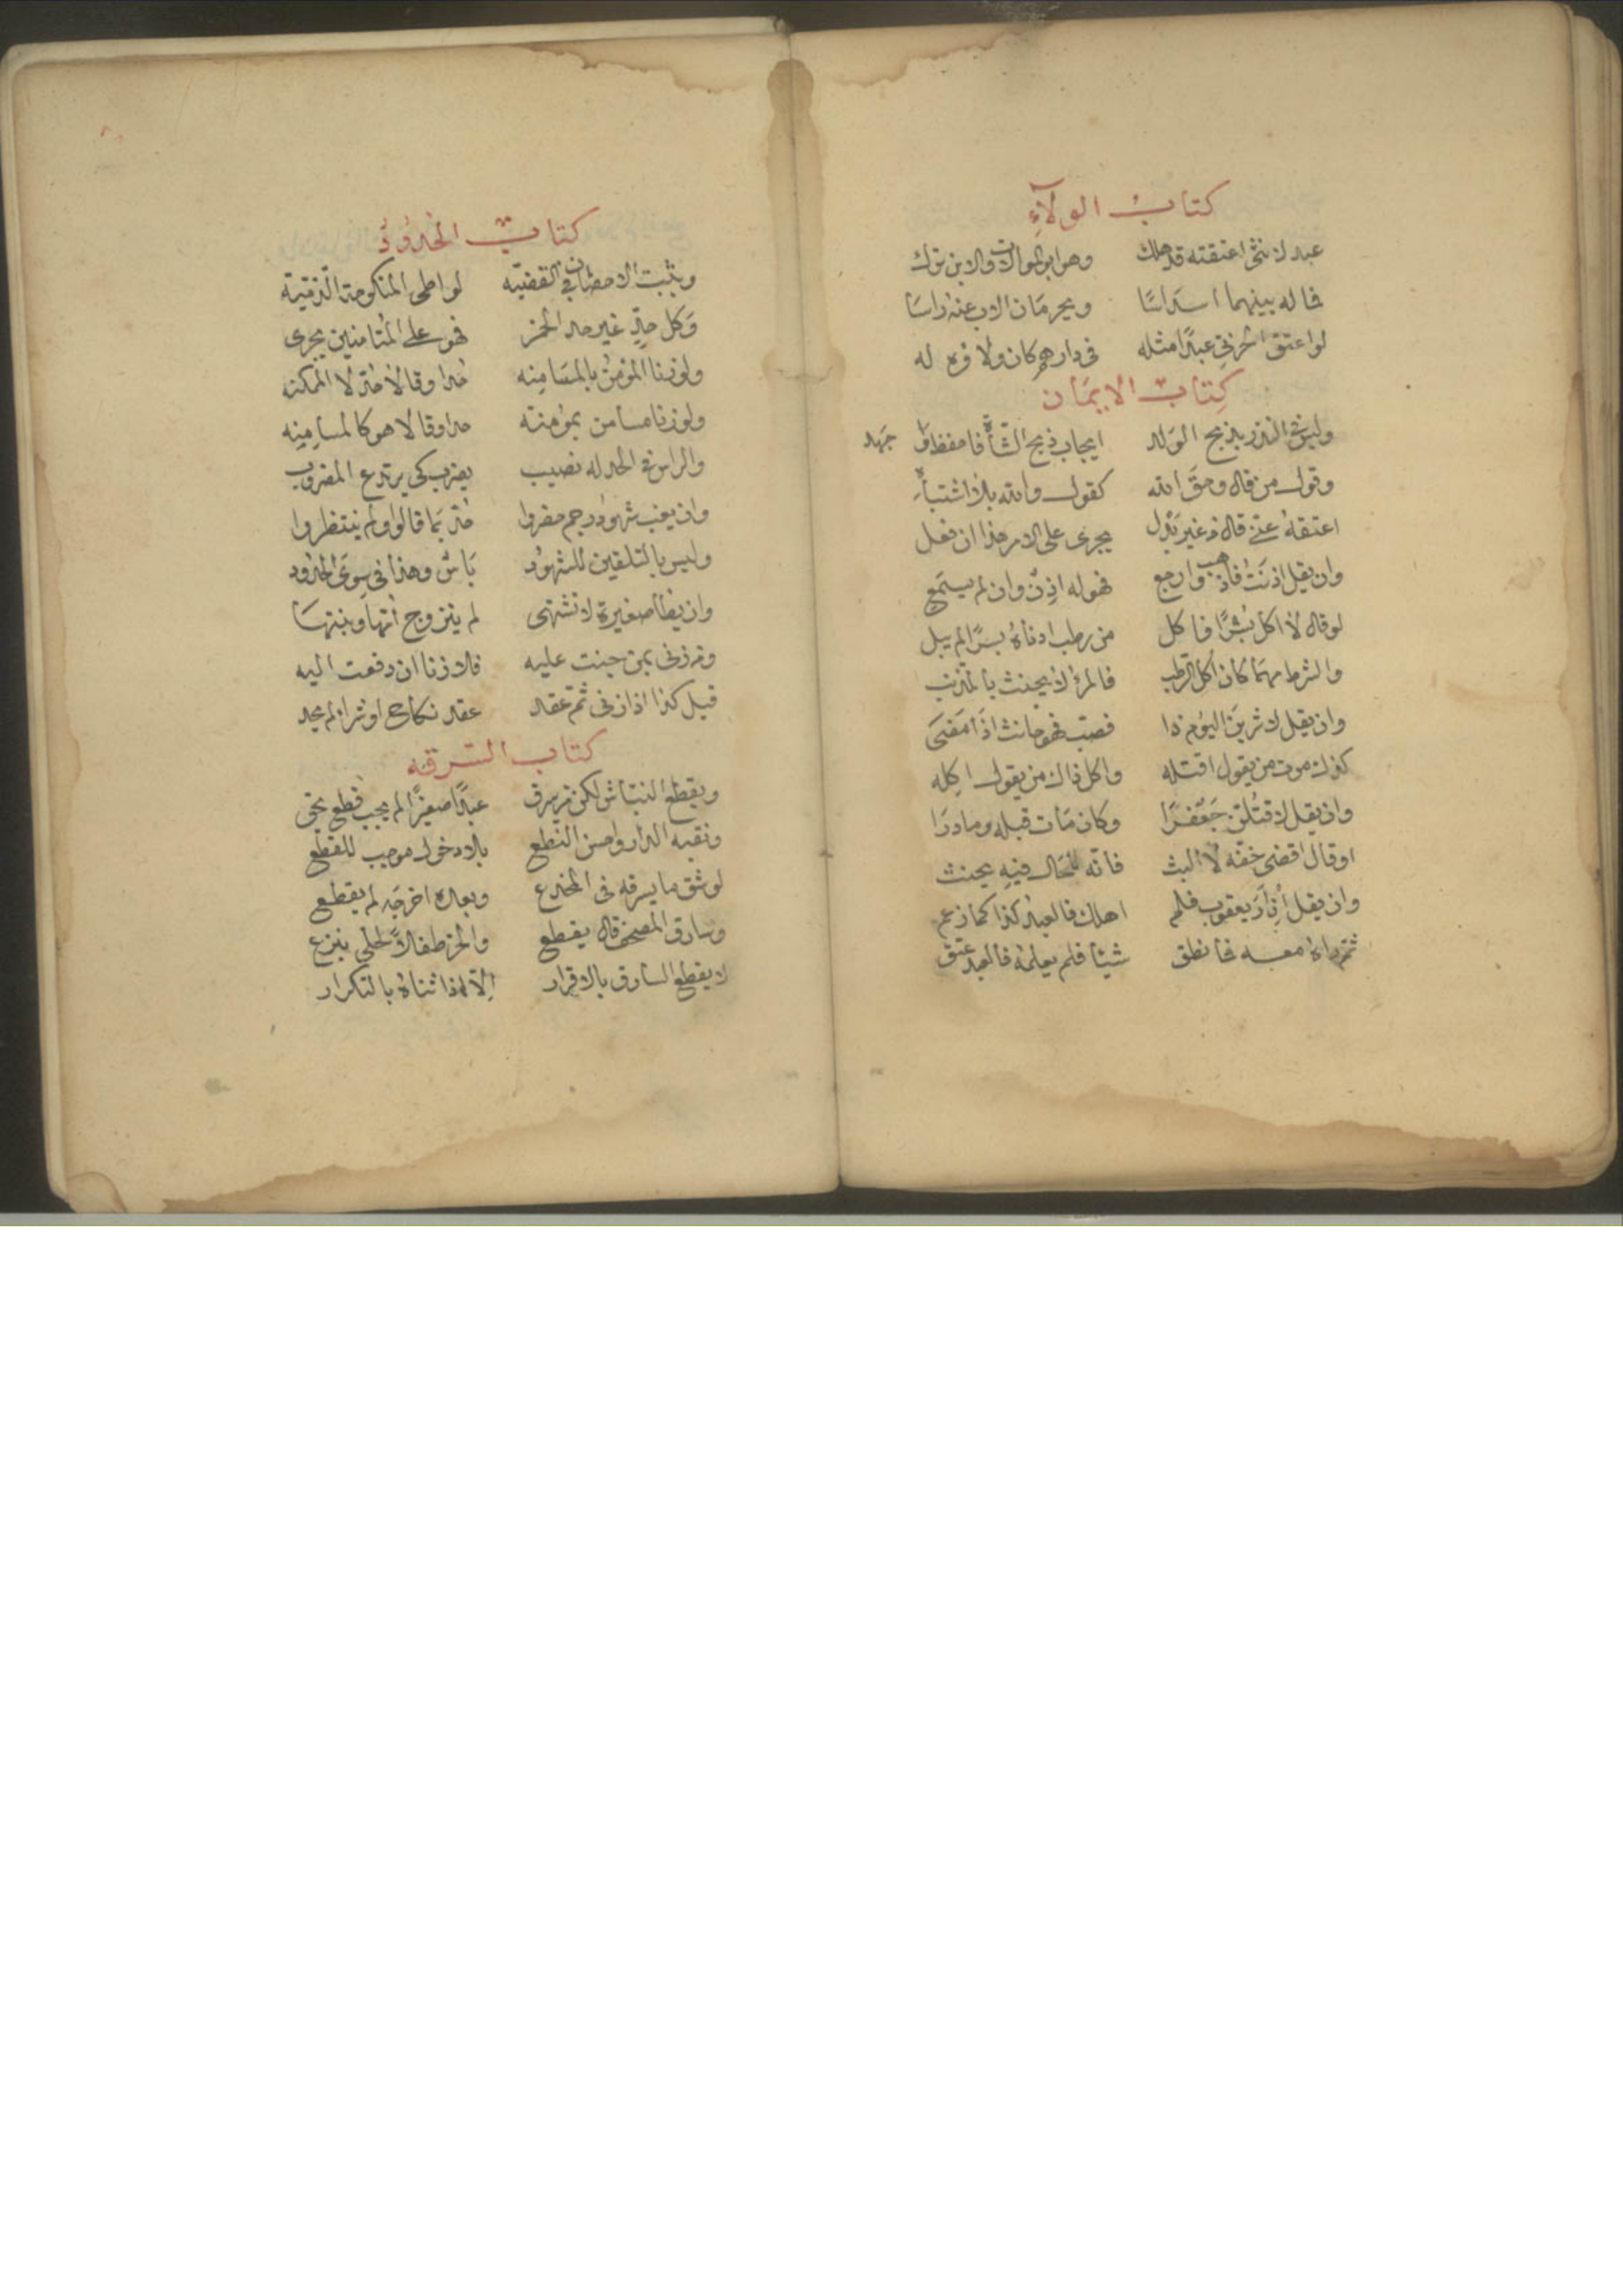 كتاب الولآء
عبد لانثى اعتقته قد هلك وهو ابو المولات والابن ترك
فماله بينهما اسداسا ويحرمان الاب عنه راسا
لو اعتق الحربي عبدا مثله في دارهم كان ولا وه له
كتاب الايمان
وليس في النذر بذبح الولد ايجاب ذبح الشاة فاحفظه وجهد
وقول من قال وحق الله كقول والله بلا اشتباه
اعتقه عني قال ذ غير بدل يجري على الامر هذا ان فعل
وان يقل اذنت فاذهب وارجع فهو له اذن وان لم يسمع
لو قال لا اكل بسرا فاكل من رطب ادناه بسرا لم يبل
والشرط مهما كان اكل الرطب فالمرؤ لا يحنث بالمذنب
وان يقل لاشربن اليوم ذا فصب فهو حانث اذا مضى
كذاك موت من يقول اقتله واكل ذاك من يقول اكله
وان يقل لاقتلن جعفرا وكان مات قبله وما درا
او قال اقضي حقه لا البث فانه للحال فيه يحنث
وان يقل ان ار يعقوب فلم اعلمك فالعبد كذا كما زعم
ثم راه معه فما نطق شيئا فلم يعلمه فالعبد عتق
كتاب الحدود
ويثبت الاحصان في القضيه لواطي المنكوحة الذمية
وكل حد غير حد الخمر فهو على المستامنين يجري
ولو زنا المؤمن بالمستامنه حدا وقالا حد لا الممكنه
ولو زنا مسامن بمؤمنته حدا وقالا هو كالمسامنه
والراس في الحد له نصيب يضرب كي يرتدع المضروب
وان يغب شهود رجم حضروا حد بما قالوا ولم ينتظروا
وليس بالتلقين للشهود باس وهذا في سوى الحدود
وان يطأ صغيرة لا تشتهى لم يتزوج امها وبنتها
ومن زنى بمن جنت عليه فلا زنا ان دفعت اليه
قيل كذا اذا زنى ثم عقد عقد نكاح او شرا لم يحد
كتاب السرقه
ويقطع النباش لكن من يسرق عبدا صغيرا لم يجب قطع يحق
ونقبه الدار واحسن النطع بلا دخول موجب للقطع
لو شق ما يسرقه في المخدع وبعده اخرجه لم يقطع
وسارق المصحف قال يقطع والحر طفلا لحلي ينزع
لا يقطع السارق بالاقرار الا اذا ثناه بالتكرار